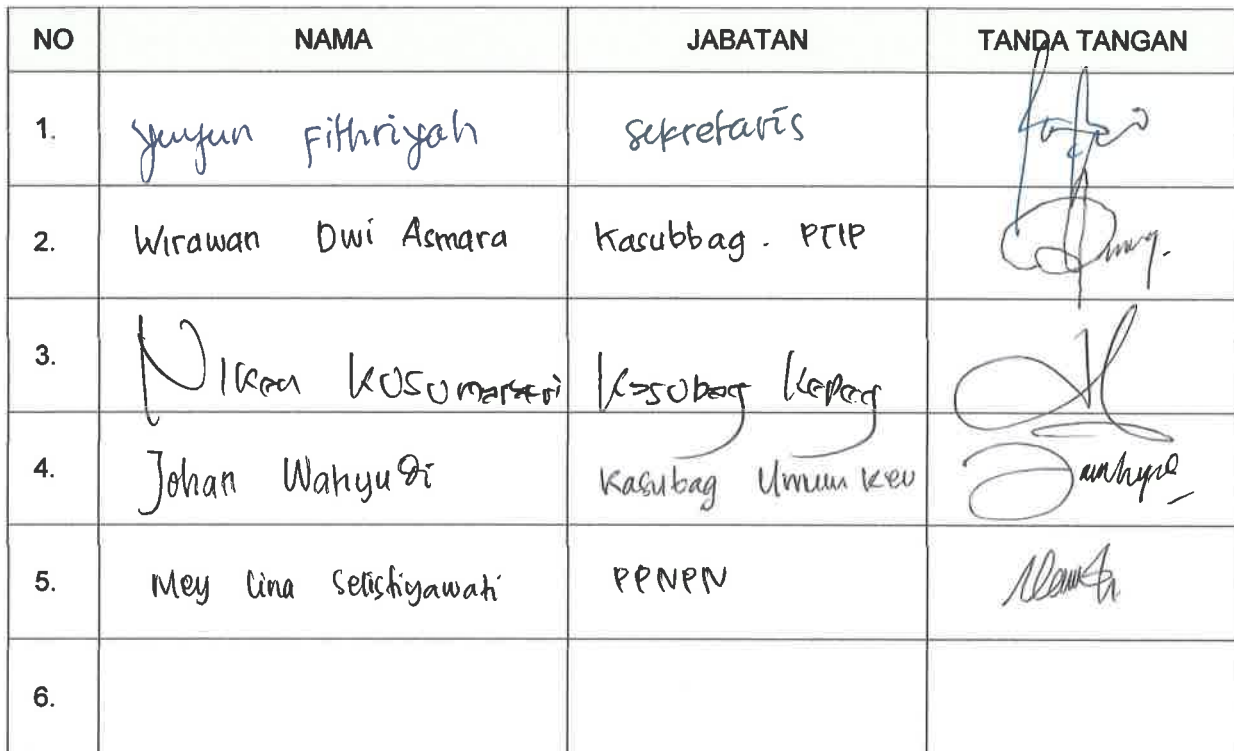 NO NAMA JABATAN TANDA TANGAN
1. Yuyun Fithriyah Sekretaris
2. Wirawan Dwi Asmara Kasubbag. PTIP
3. Niken Kusumarseri Kasubag Kepeg
4. Johan Wahyudi Kasubag Umum Keu
5. Mey Lina Selistiyawati PPNPN
6.